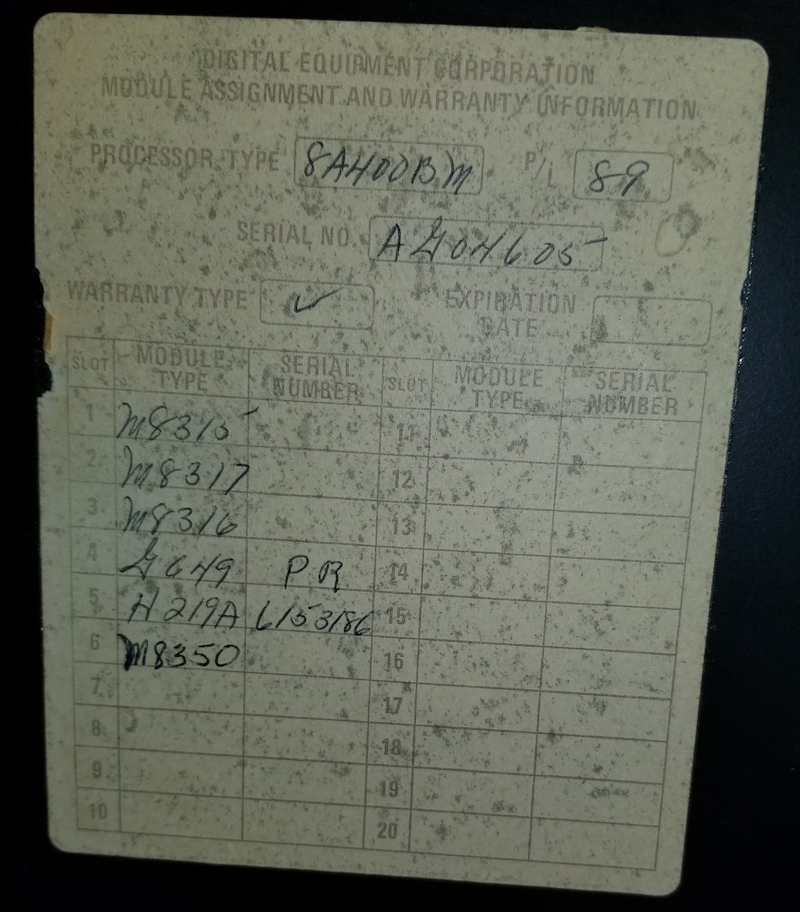 DIGITAL EQUIPMENT CORPORATION
MODULE ASSIGNMENT AND WARRANTY INFORMATION
PROCESSOR TYPE 8A400BM P/L 89
SERIAL NO. AG04605
WARRANTY TYPE ✓ EXPIRATION DATE
SLOT MODULE TYPE SERIAL NUMBER SLOT MODULE TYPE SERIAL NUMBER
1 M8315 11
2 M8317 12
3 M8316 13
4 G649 PR 14
5 H219A 6153186 15
6 M8350 16
7 17
8 18
9 19
10 20